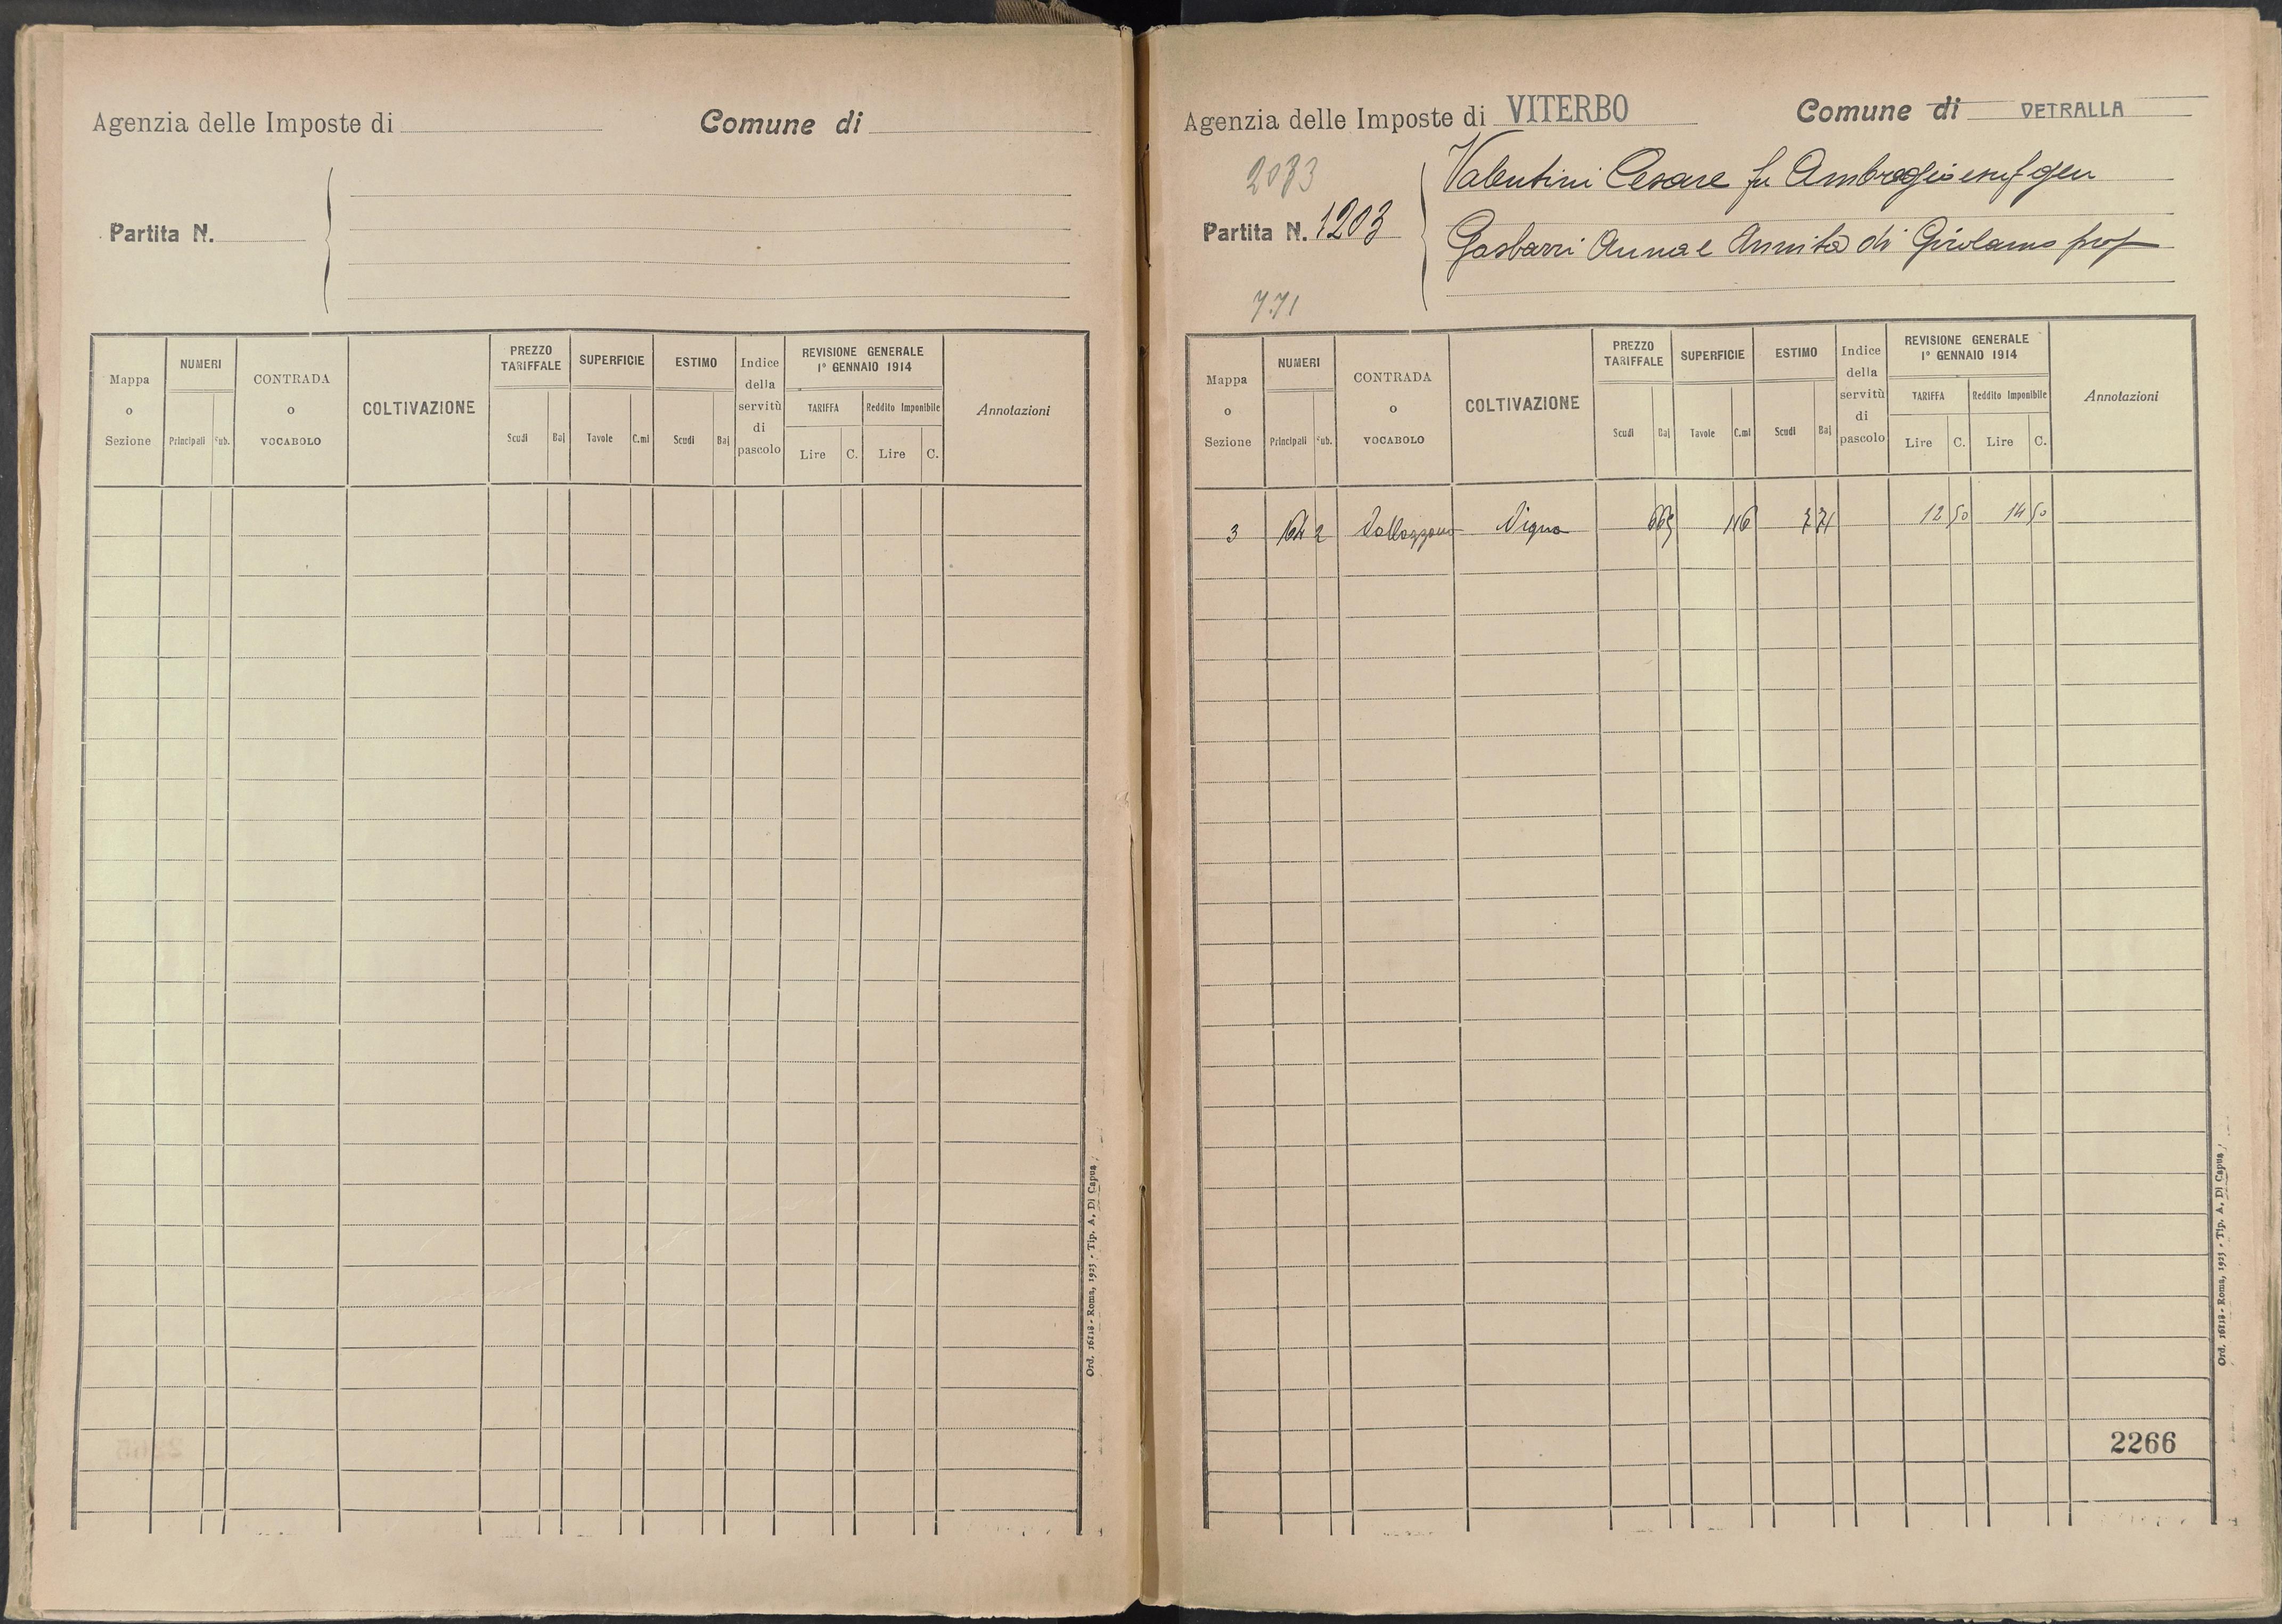 Agenzia delle Imposte di
Comune di
Partita N.
Mappa o Sezione
NUMERI
Principali
Sub.
CONTRADA o VOCABOLO
COLTIVAZIONE
PREZZO TARIFFALE
Scudi
Baj
SUPERFICIE
Tavole
C.mi
ESTIMO
Scudi
Baj
Indice della servitù di pascolo
REVISIONE GENERALE
1° GENNAIO 1914
TARIFFA
Reddito Imponibile
Lire
C.
Lire
C.
Annotazioni
Ord. 16118 - Roma, 1923 - Tip. A. Di Capua
Agenzia delle Imposte di VITERBO
Comune di VETRALLA
Partita N. 1203
Valentini Cesare fu Ambrogio gen
Gasbarri Anna e Annita di Girolamo prop
771
Mappa o Sezione
NUMERI
Principali
Sub.
CONTRADA o VOCABOLO
COLTIVAZIONE
PREZZO TARIFFALE
Scudi
Baj
SUPERFICIE
Tavole
C.mi
ESTIMO
Scudi
Baj
Indice della servitù di pascolo
REVISIONE GENERALE
1° GENNAIO 1914
TARIFFA
Reddito Imponibile
Lire
C.
Lire
C.
Annotazioni
3 2 Vigna 12 50 14 50
2266
Ord. 16118 - Roma, 1923 - Tip. A. Di Capua